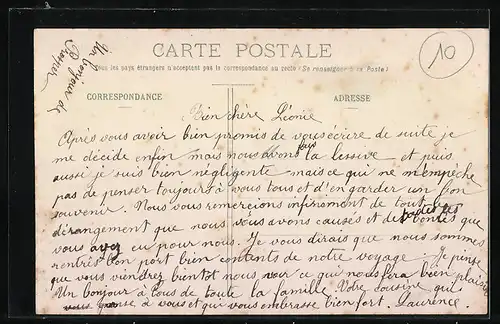 Un bonjour de
CARTE POSTALE
Tous les pays étrangers n'acceptent pas la correspondance au recto (Se renseigner à la Poste)
10
CORRESPONDANCE
ADRESSE
Bien chère Léonie
Après vous avoir bien promis de vous écrire de suite je
me décide enfin mais nous avons fais la lessive et puis
aussi je suis bien négligente mais ce qui ne m'empêche
pas de penser toujours à vous tous et d'en garder un bon
souvenir. Nous vous remercions infiniment de tout le
dérangement que nous vous avons causés et de bontés que
vous avez eu pour nous. Je vous dirais que nous sommes
rentrés bon port bien contents de notre voyage; Je pense
que vous viendrez bientôt nous voir ce qui nous fera bien plaisir
Un bonjour à tous de toute la famille Votre cousine qui
pense à vous et qui vous embrasse bien fort. Laurence.